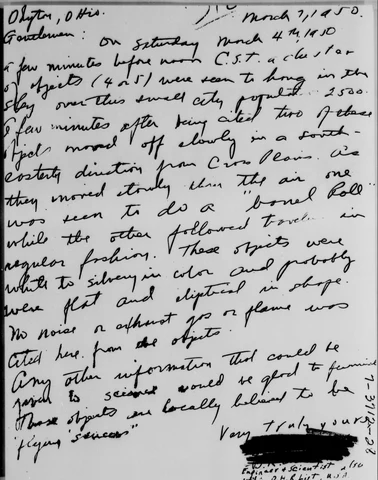 Dayton, Ohio.
March 7, 1950.
Gentlemen: On Saturday March 4th, 1950
a few minutes before noon C.S.T. a cluster
of objects (4 or 5) were seen to hang in the
sky over this small city, population 2500.
A few minutes after being cited two of these
objects moved off slowly in a south-
easterly direction from Cross Plains. As
they moved slowly thru the air one
was seen to do a "barrel Roll"
while the other followed travel in
regular fashion. These objects were
white to silvery in color and probably
were flat and eliptical in shape.
No noise or exhaust gas or flame was
cited here from the objects.
Any other information that could be
given to science would be glad to furnish
These objects are locally believed to be
"flying saucers"
Very truly yours
Engineer & Scientist
U.S.A